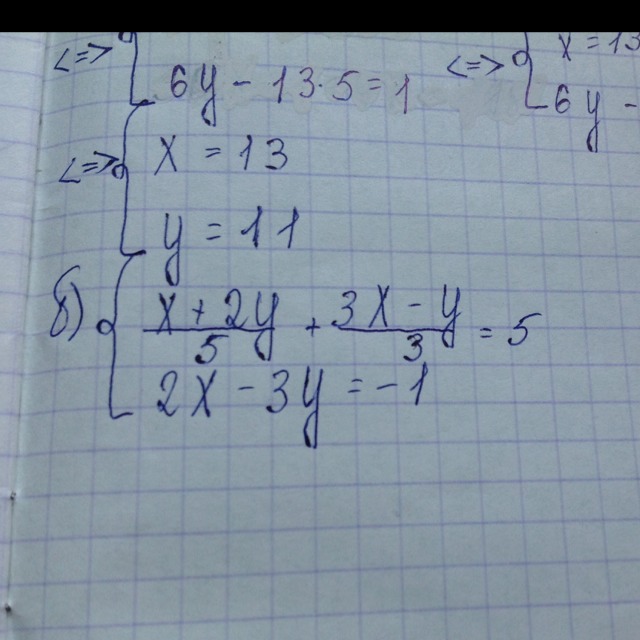 <=> { 6y - 13·5 = 1 <=> { x = 13
6y -
<=> { x = 13
y = 11
б) { (x + 2y)/5 + (3x - y)/3 = 5
2x - 3y = -1